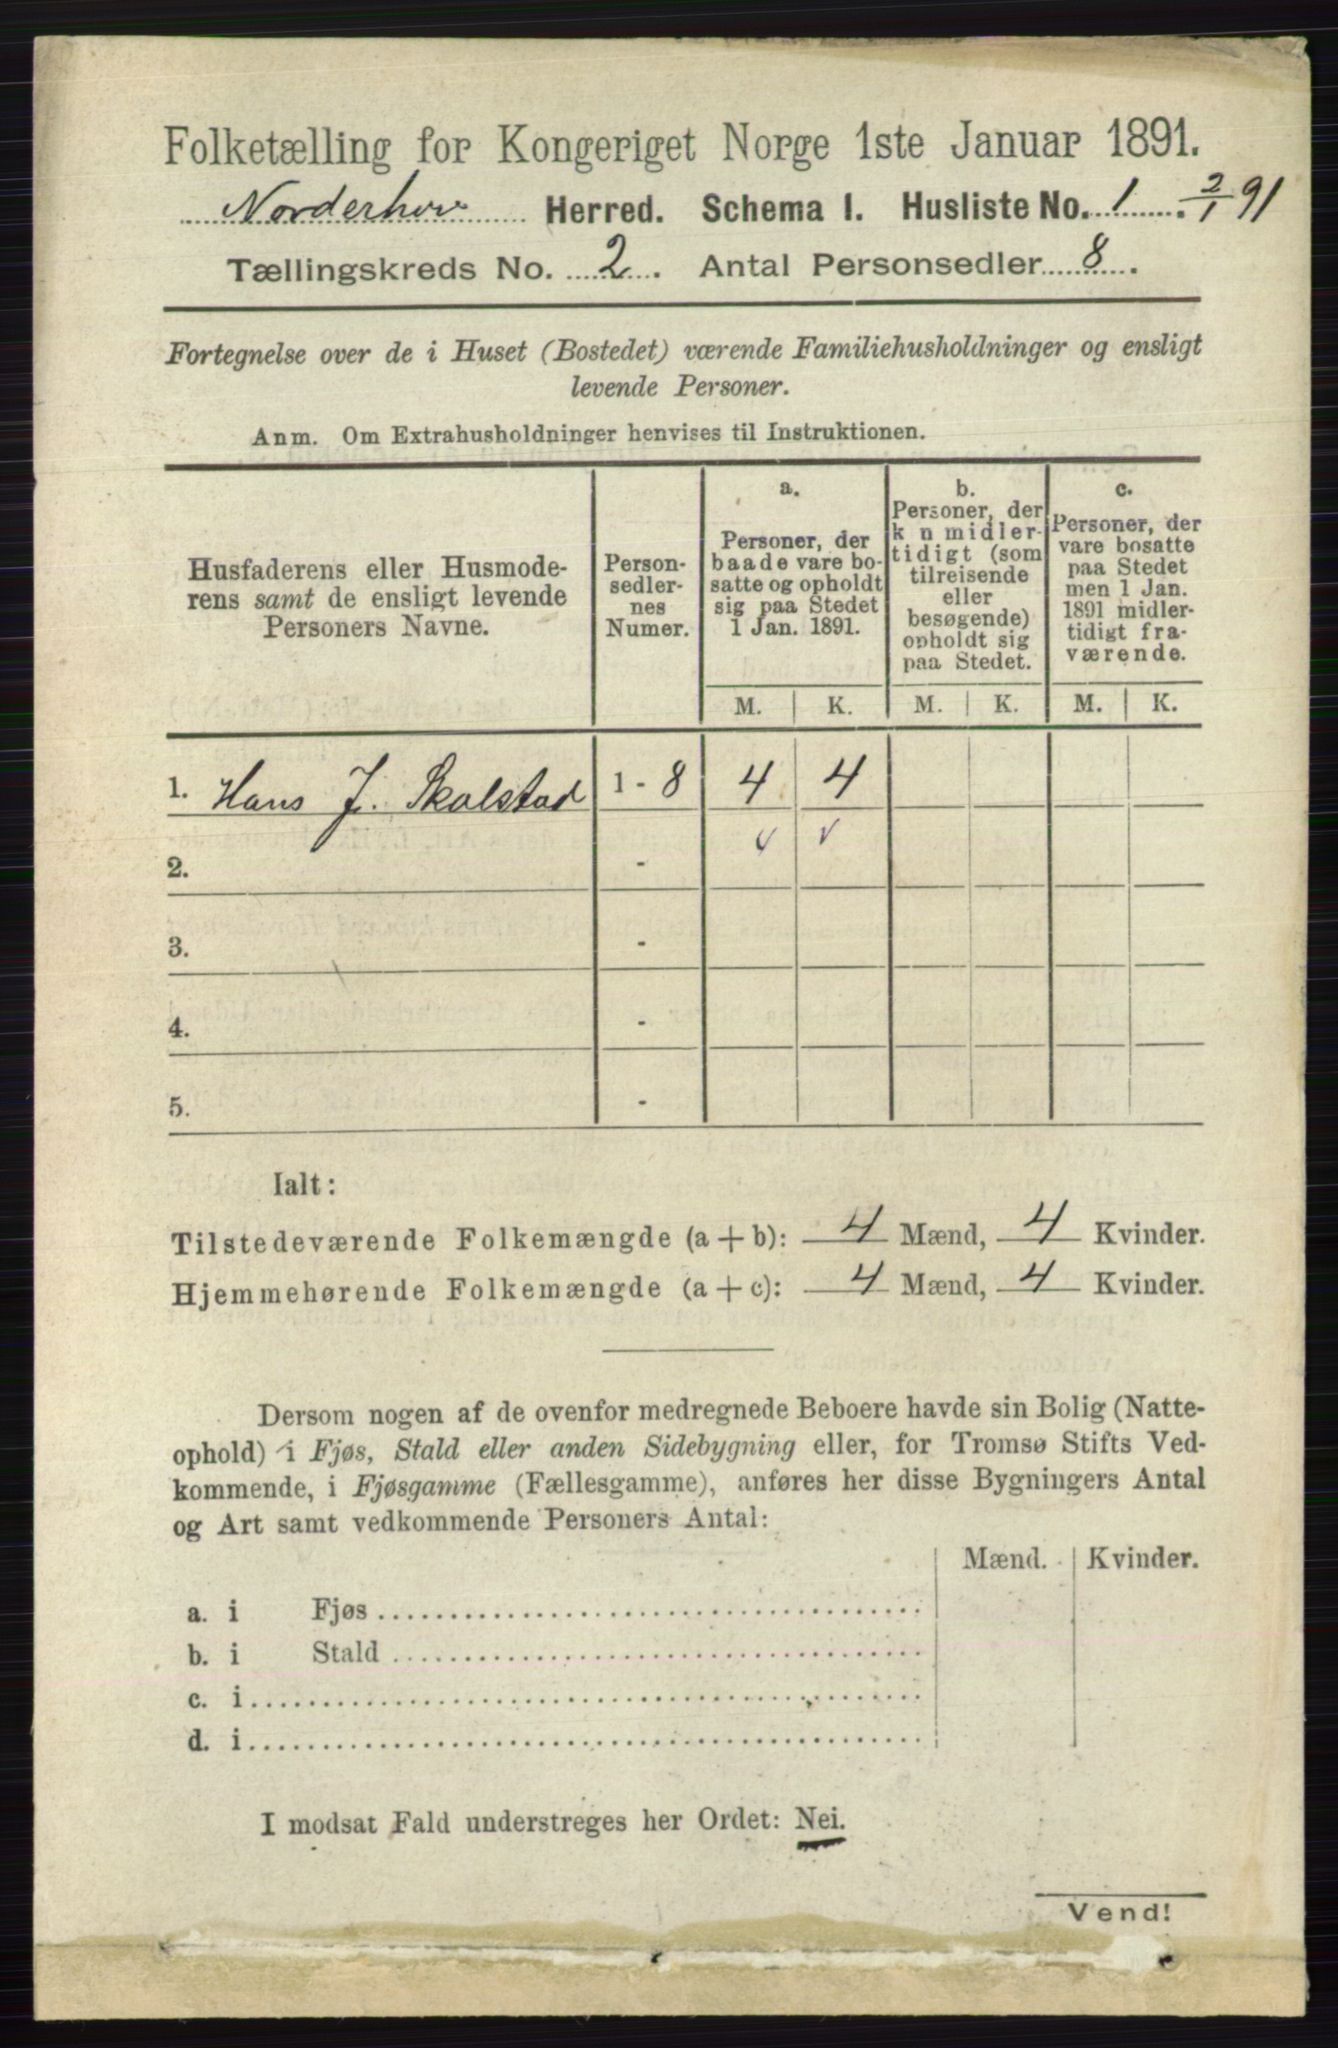 Folketælling for Kongeriget Norge 1ste Januar 1891.
Norderhov Herred. Schema I. Husliste No. 1. 2/1 91
Tællingskreds No. 2. Antal Personsedler 8.
Fortegnelse over de i Huset (Bostedet) værende Familiehusholdninger og ensligt
levende Personer.
Anm. Om Extrahusholdninger henvises til Instruktionen.
Husfaderens eller Husmode-
rens samt de ensligt levende
Personers Navne.
Person-
sedler-
nes
Numer.
a.
Personer, der
baade vare bo-
satte og opholdt
sig paa Stedet
1 Jan. 1891.
b.
Personer, der
k n midler-
tidigt (som
tilreisende
eller
besøgende)
opholdt sig
paa Stedet.
c.
Personer, der
vare bosatte
paa Stedet
men 1 Jan.
1891 midler-
tidigt fra-
værende.
M. K. M. K. M. K.
1. Hans J. Skalstad 1 - 8 4 4
2. -
3. -
4. -
5. -
Ialt:
Tilstedeværende Folkemængde (a + b): 4 Mænd, 4 Kvinder.
Hjemmehørende Folkemængde (a + c): 4 Mænd, 4 Kvinder.
Dersom nogen af de ovenfor medregnede Beboere havde sin Bolig (Natte-
ophold) i Fjøs, Stald eller anden Sidebygning eller, for Tromsø Stifts Ved-
kommende, i Fjøsgamme (Fællesgamme), anføres her disse Bygningers Antal
og Art samt vedkommende Personers Antal:
Mænd. Kvinder.
a. i Fjøs
b. i Stald
c. i
d. i
I modsat Fald understreges her Ordet: Nei.
Vend!